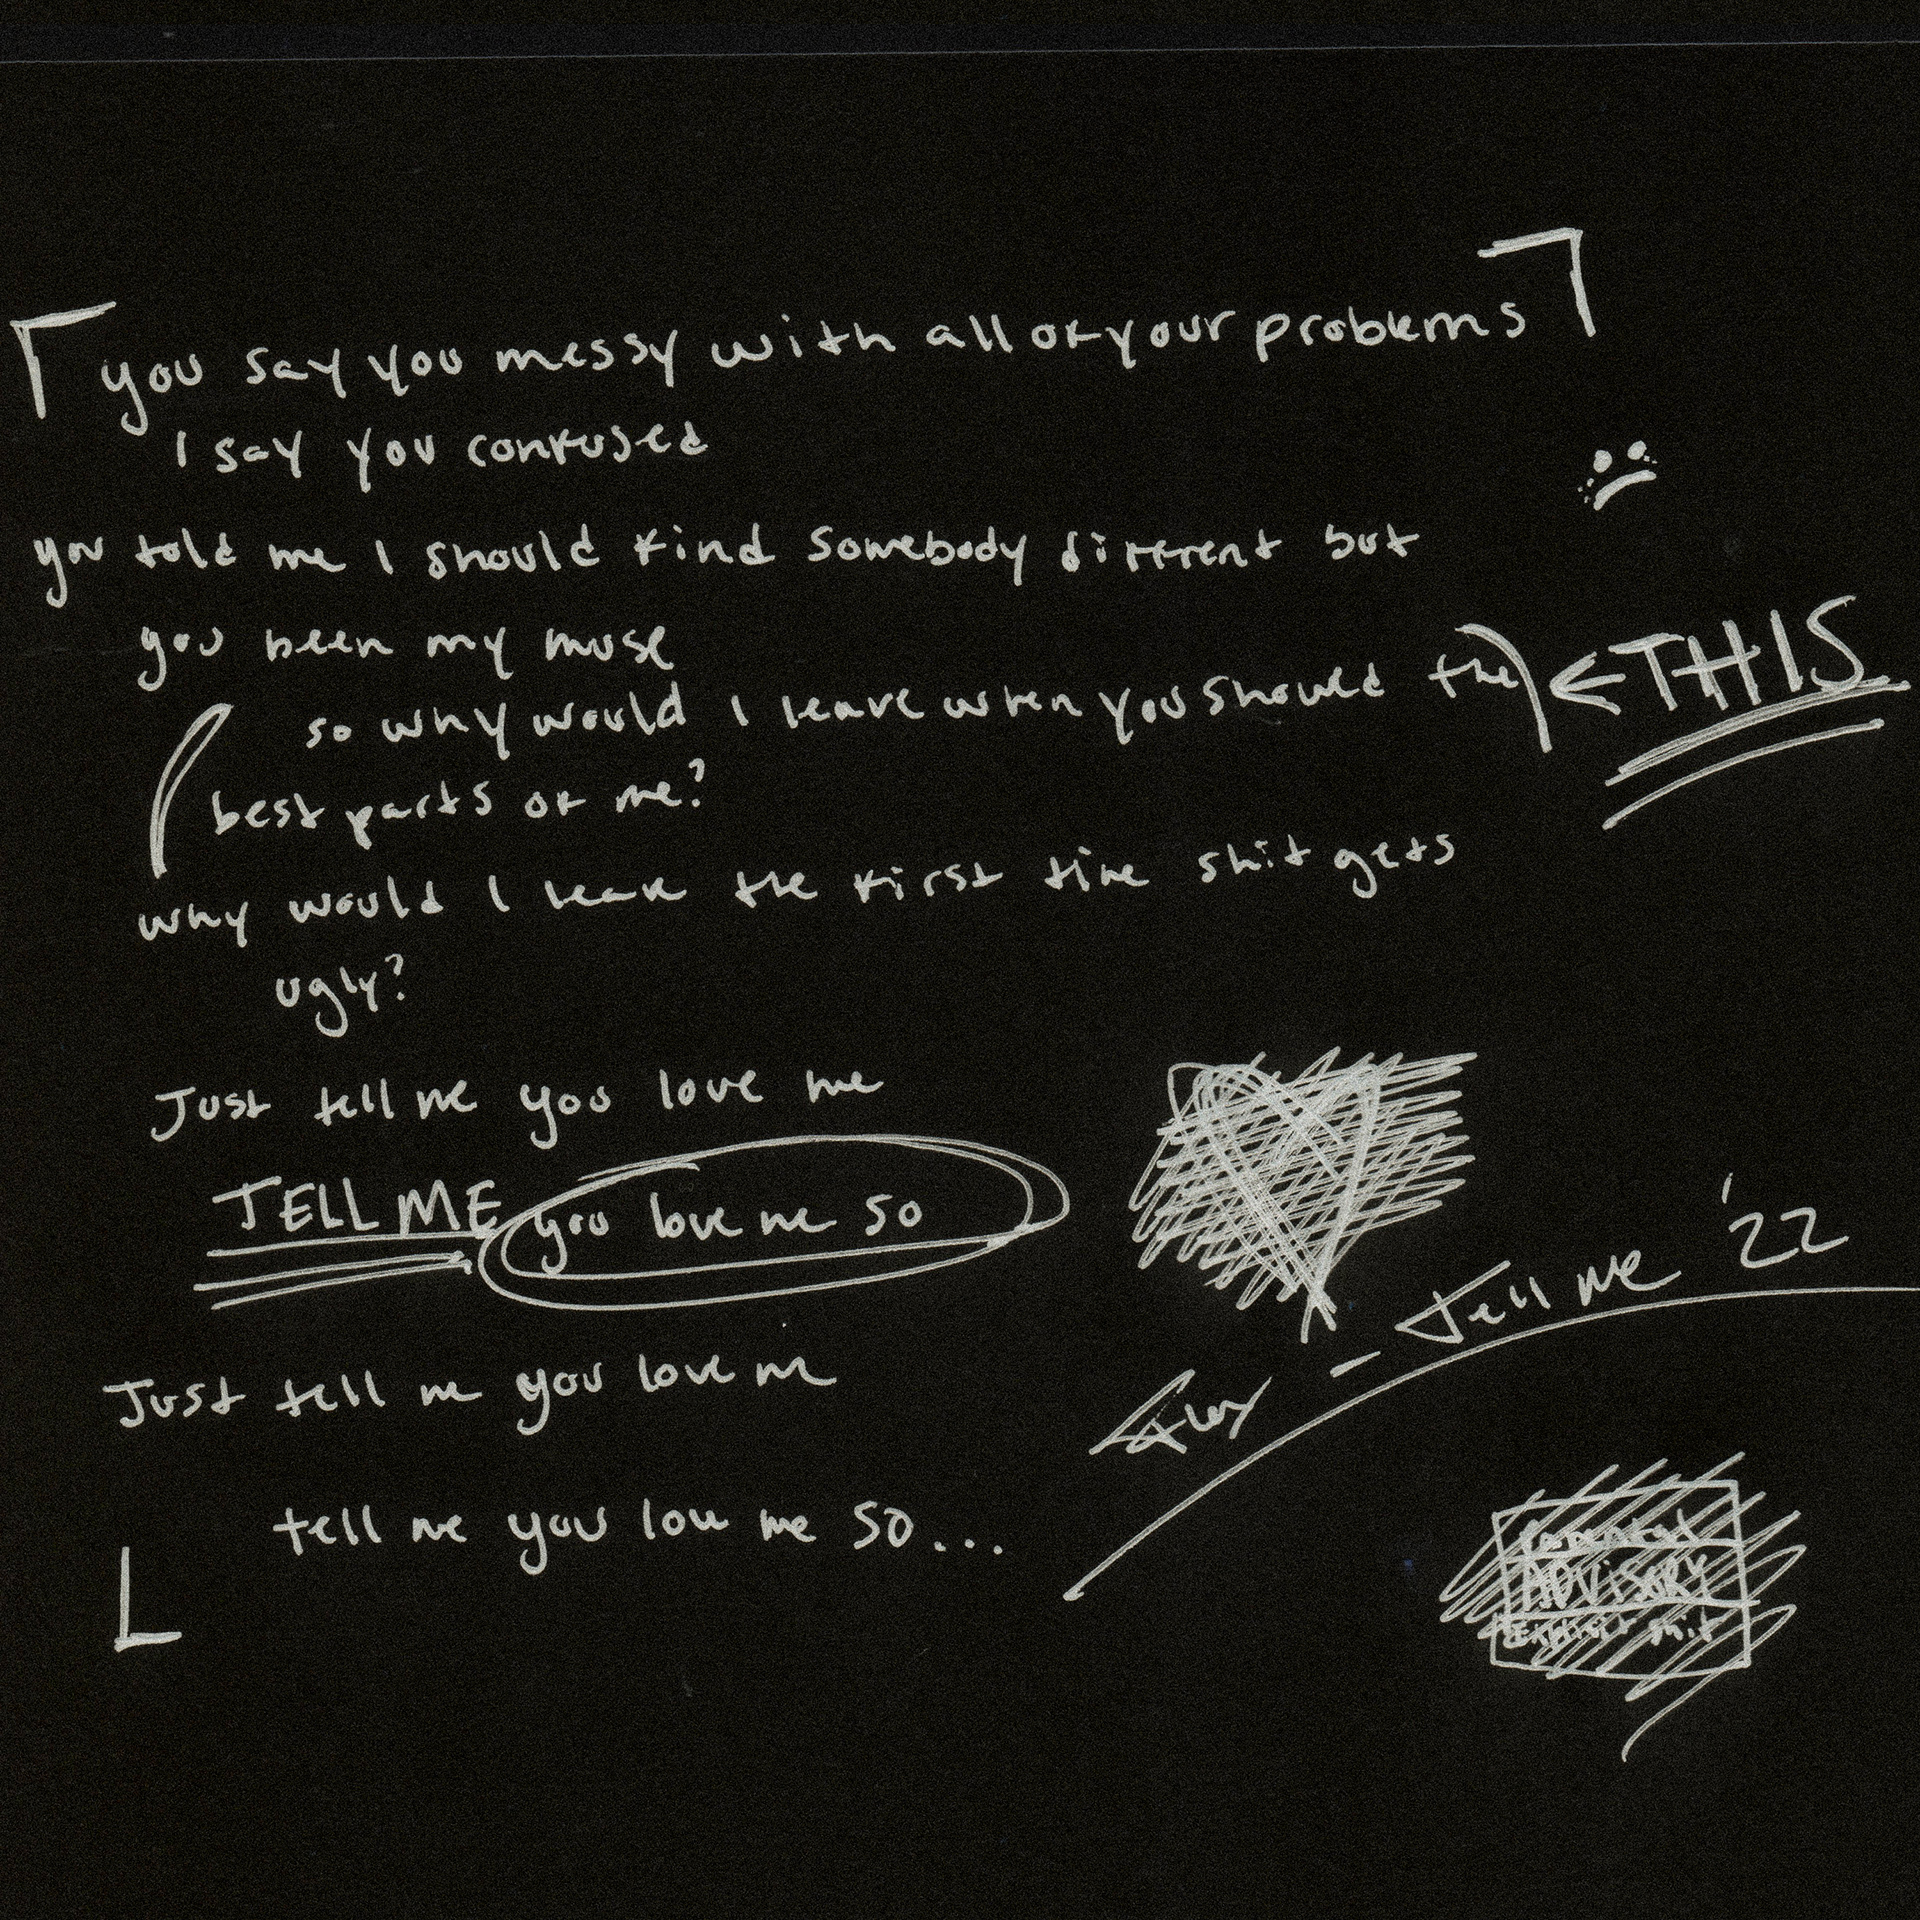 you say you messy with all of your problems
I say you confused
you told me I should find somebody different but
you been my muse
so why would I leave when you showed the
← THIS
best parts of me?
why would I leave the first time shit gets
ugly?
Just tell me you love me
TELL ME you love me so
Just tell me you love me
- Tell me '22
tell me you love me so...
Parental
ADVISORY
Explicit shit